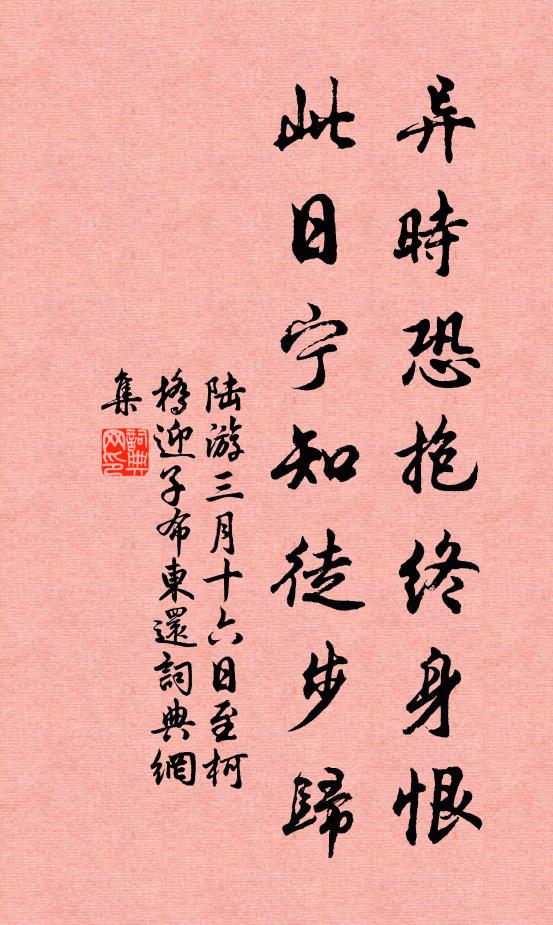 异時恐抱終身恨
此日宁知徒步歸
陆游三月十六日至柯
橋迎子布東還詞典網
集
詞典
网印